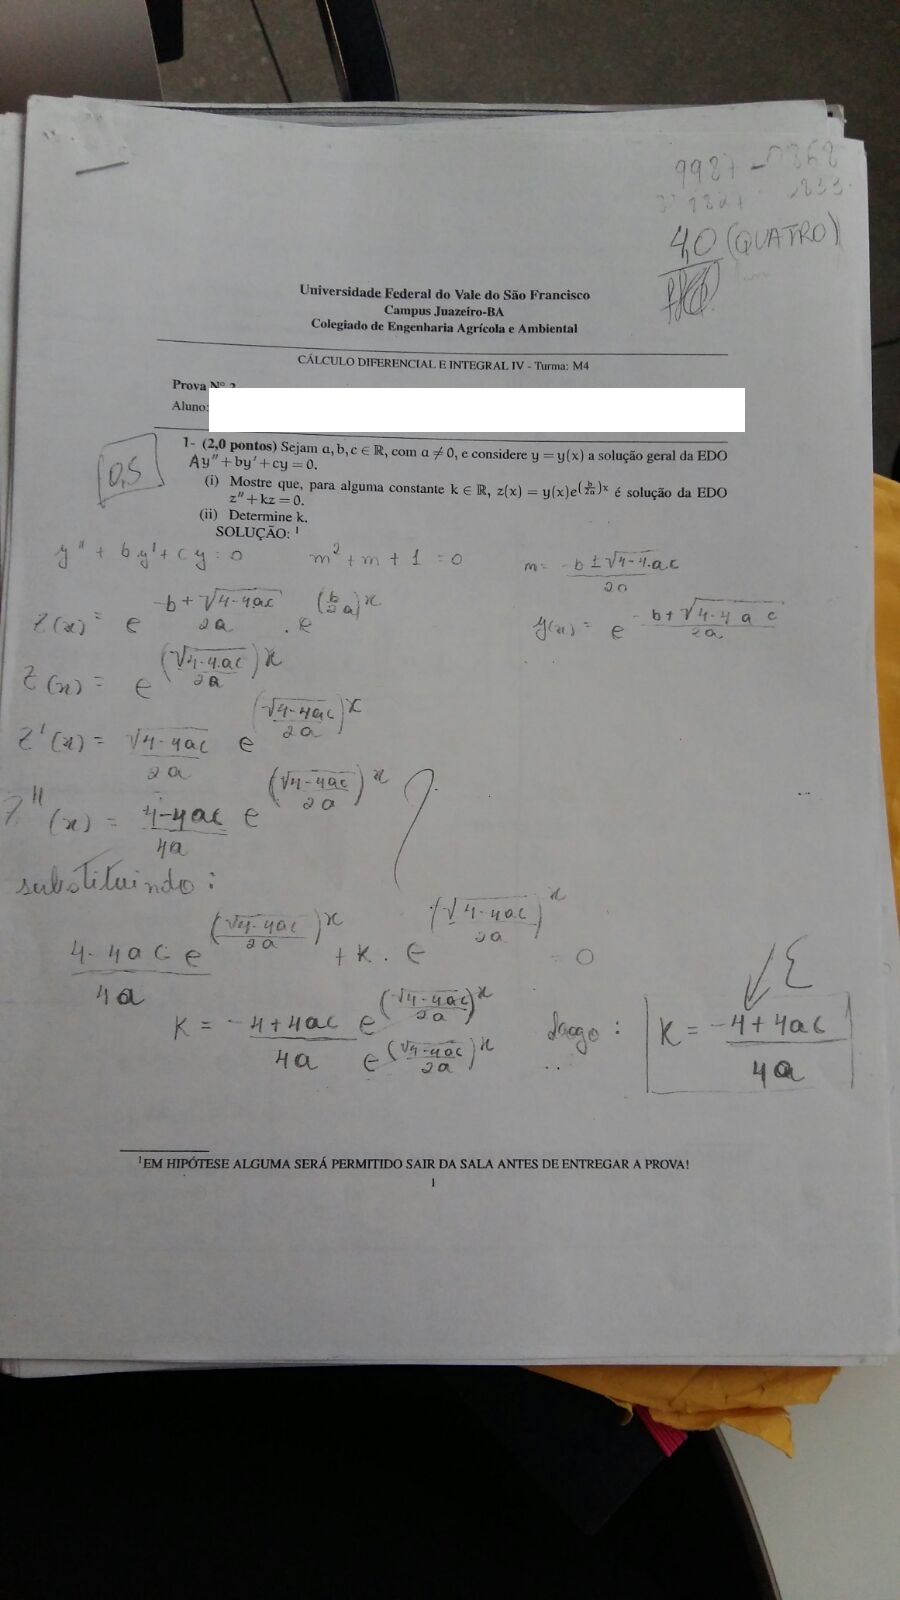 9987-0868
4,0 (QUATRO)
Universidade Federal do Vale do São Francisco
Campus Juazeiro-BA
Colegiado de Engenharia Agrícola e Ambiental
CÁLCULO DIFERENCIAL E INTEGRAL IV - Turma: M4
Prova Nº 2
Aluno:
0,5
1- (2,0 pontos) Sejam a, b, c ∈ ℝ, com a ≠ 0, e considere y = y(x) a solução geral da EDO
Ay'' + by' + cy = 0.
(i) Mostre que, para alguma constante k ∈ ℝ, z(x) = y(x)e^(b/2a)x é solução da EDO
z'' + kz = 0.
(ii) Determine k.
SOLUÇÃO: 1
y'' + by' + cy = 0 m² + m + 1 = 0 m = -b ± √4-4.ac / 2a
z(x) = e^(-b + √4-4ac / 2a) . e^(b/2a)x y(x) = e^(-b + √4-4ac / 2a)
z(x) = e^(√4-4ac / 2a)x
z'(x) = √4-4ac / 2a e^(√4-4ac / 2a)x
z''(x) = 4-4ac / 4a e^(√4-4ac / 2a)x
substituindo:
4-4ac / 4a e^(√4-4ac / 2a)x + k . e^(√4-4ac / 2a)x = 0
K = -4+4ac / 4a e^(√4-4ac / 2a)x / e^(√4-4ac / 2a)x Logo: K = -4+4ac / 4a
1EM HIPÓTESE ALGUMA SERÁ PERMITIDO SAIR DA SALA ANTES DE ENTREGAR A PROVA!
1